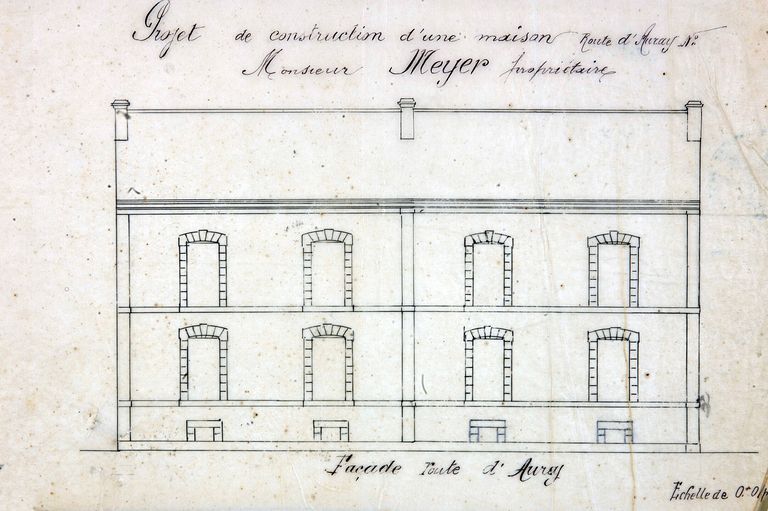 Projet de construction d'une maison Route d'Auray No
Monsieur Meyer propriétaire
Façade route d'Auray
Echelle de 0.m 01